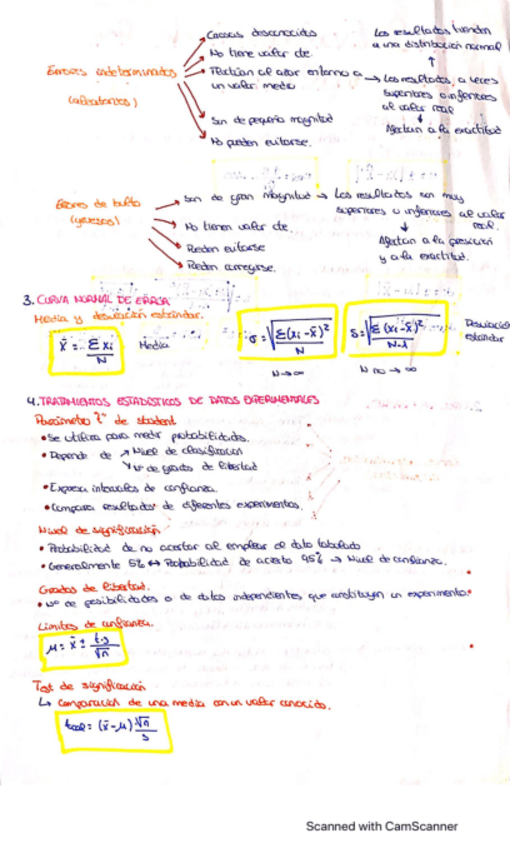 Causas desconocidas
No tiene valor de.
Errores indeterminados
(aleatorios)
Fluctúan al azar entorno a
un valor medio
Los resultados, a veces
superiores o inferiores
al valor real
Los resultados tienden
a una distribución normal
Afectan a la exactitud
Son de pequeña magnitud
No pueden evitarse.
Errores de bulto
(groseros)
Son de gran magnitud → Los resultados son muy
superiores u inferiores al valor
real.
No tienen valor de.
Afectan a la precisión
y a la exactitud.
Pueden evitarse
Pueden corregirse.
3. CURVA NORMAL DE ERROR
Media y desviación estándar.
x̄ = Σ xi / N
Media
σ = √(Σ(xi - x̄)² / N)
N → ∞
s = √(Σ(xi - x̄)² / N-1)
N no → ∞
Desviación
estándar
4. TRATAMIENTOS ESTADÍSTICOS DE DATOS EXPERIMENTALES
Parámetro "t" de student
• Se utiliza para medir probabilidades.
• Depende de ↗ Nivel de clasificación
↘ Nº de grado de libertad
• Expresa intervalos de confianza.
• Compara resultados de diferentes experimentos.
Nivel de significación
• Probabilidad de no acertar al emplear el dato tabulado
• Generalmente 5% ↔ Probabilidad de acierto 95% → Nivel de confianza.
Grados de libertad.
• Nº de posibilidades o de datos independientes que constituyen un experimento.
Límites de confianza.
μ = x̄ ± t·s / √n
Test de significación
↳ Comparación de una media con un valor conocido.
tcal = (x̄ - μ) √n / s
Scanned with CamScanner